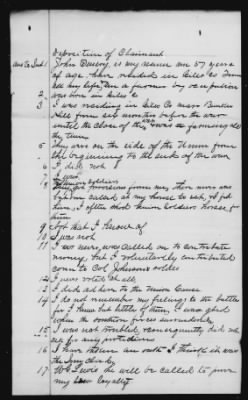 Deposition of Claimant
Ans to Int 1 John is my name am 57 years
of age, have resided in Giles Co Tenn
all my life, am a farmer by occupation
was born in Giles Co
2 I was residing in Giles Co near
Hill from six months before the war
until the close of the war was farming all
the time
5 They was on the side of the Union from
the beginning to the end of the war
6 I did not
7 I was
8 Union soldiers
got from me, there was
called at my house to eat, & fed
them, & often shod Union Soldiers horses for
them
9 Not that I know of
10 I was not
11 I was never called on to contribute
money, but I voluntarily contributed
corn to Col Johnsons soldiers
12 I never voted at all
13 I did adhere to the Union Cause
14 I do not remember my feelings to the battles
for I knew but little of them, I was glad
when the forces surrendered
15 I was not troubled, consequently did not
ask for any protection
16 I have taken an oath & think it was
the
17 Lewis he will be called to prove
my loyalty